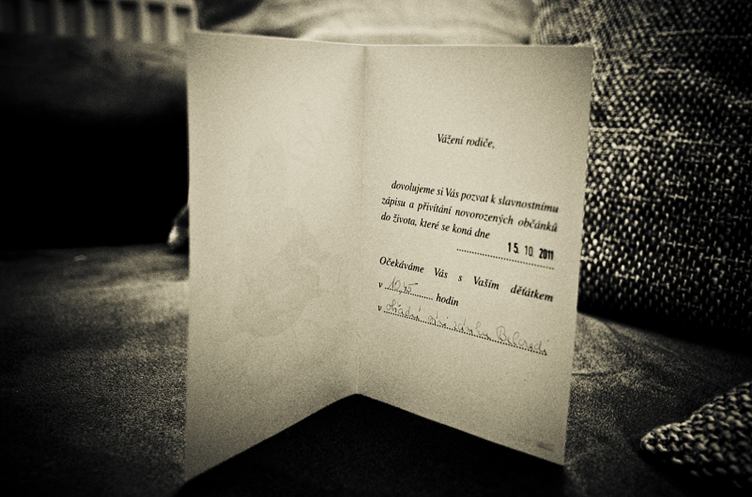 Vážení rodiče,
dovolujeme si Vás pozvat k slavnostnímu
zápisu a přivítání novorozených občánků
do života, které se koná dne
15. 10. 2011
Očekáváme Vás s Vaším děťátkem
v 10,15 hodin
v